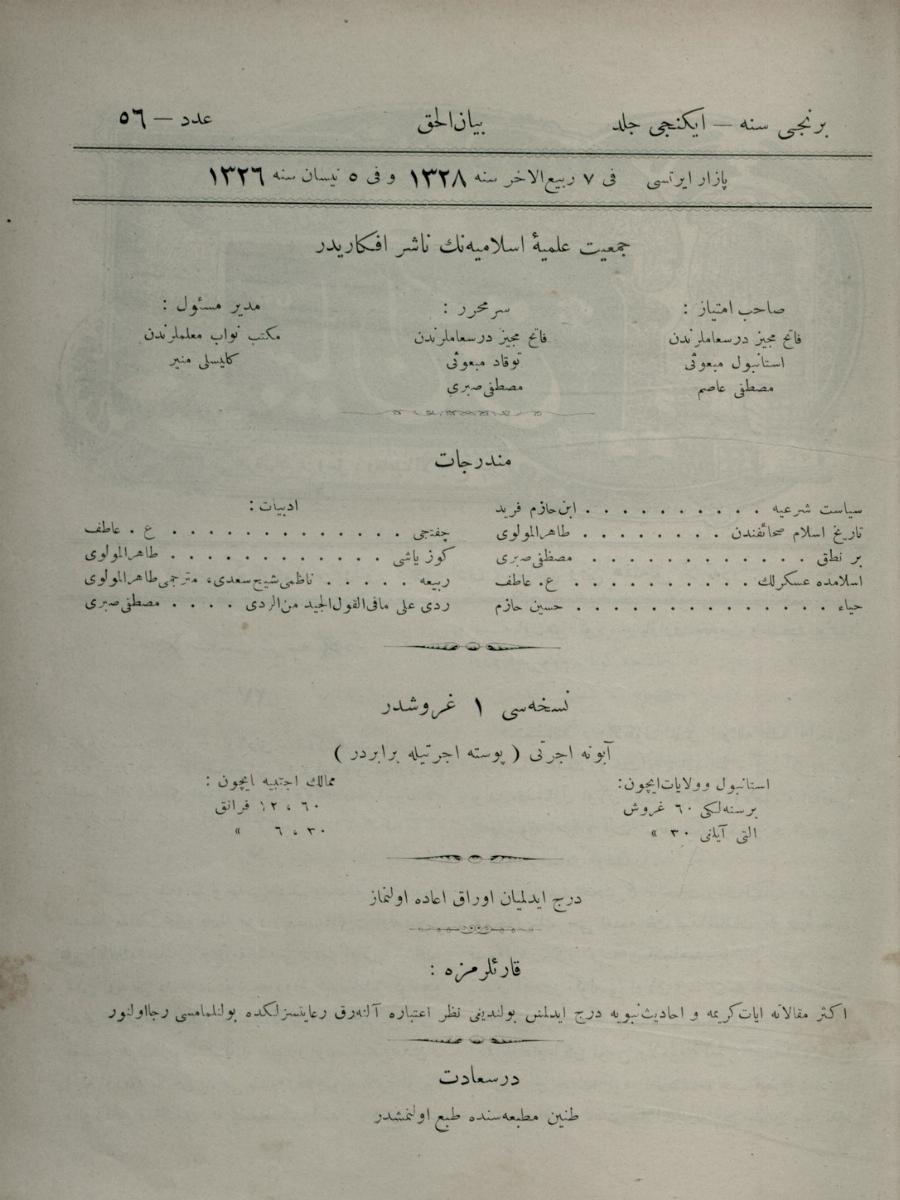 برنجی سنه — ایکنجی جلد بیان‌الحق عدد — ٥٦
پازار ایرتسی فی ٧ ربیع‌الاخر سنه ١٣٢٨ و فی ٥ نیسان سنه ١٣٢٦
جمعیت علمیهٔ اسلامیه‌نك ناشر افكاریدر
صاحب امتیاز :
فاتح مجیز درسعاملرندن
استانبول مبعوثی
مصطفی عاصم
سرمحرر :
فاتح مجیز درسعاملرندن
توقاد مبعوثی
مصطفی صبری
مدیر مسئول :
مكتب نواب معلملرندن
كلیسلی منیر
مندرجات
سیاست شرعیه . . . . . . . . . . ابن حازم فرید
تاریخ اسلام صحائفندن . . . . . . . . طاهرالمولوی
بر نطق . . . . . . . . . . . . مصطفی صبری
اسلامده عسكرلك . . . . . . . . . . ع . عاطف
حیاء . . . . . . . . . . . . . . حسین حازم
ادبیات :
چفتجی . . . . . . . . . . . . . ع . عاطف
كوز یاشی . . . . . . . . . . . . طاهرالمولوی
ربیعه . . . . . ناظمی شیخ سعدی، مترجمی طاهرالمولوی
ردی علی مافی القول الجید من الردی . . . . مصطفی صبری
نسخه‌سی ١ غروشدر
آبونه اجرتی ( پوسته اجرتیله برابردر )
استانبول وولایات ایچون:
برسنه‌لكی ٦٠ غروش
التی آیلغی ٣٠ »
ممالك اجنبیه ایچون :
٦٠ ، ١٢ فرانق
٣٠ ، ٦ »
درج ایدلمیان اوراق اعاده اولنماز
قارئلرمزه :
اكثر مقالاته ایات كریمه و احادیث نبویه درج ایدلمش بولندیغی نظر اعتباره آلنه‌رق رعایتسزلكده بولنلمامسی رجا اولنور
درسعادت
طنین مطبعه‌سنده طبع اولنمشدر